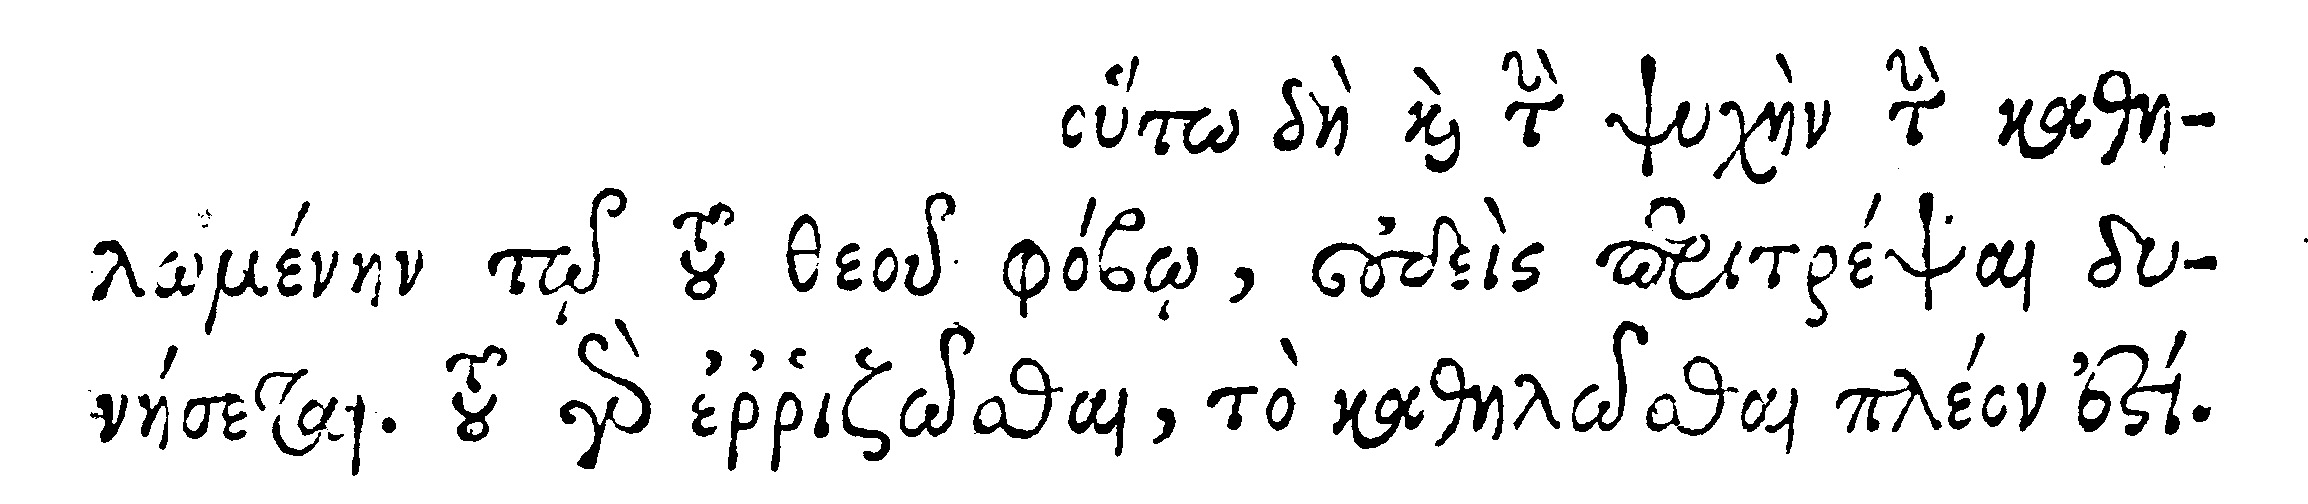 οὕτω δὴ καὶ τὴν ψυχὴν τὴν καθη-
λωμένην τῷ τοῦ θεοῦ φόβῳ, οὐδεὶς περιτρέψαι δυ-
νήσεται. τοῦ γὰρ ἐῤῥιζῶσθαι, τὸ καθηλῶσθαι πλέον ἐστί.